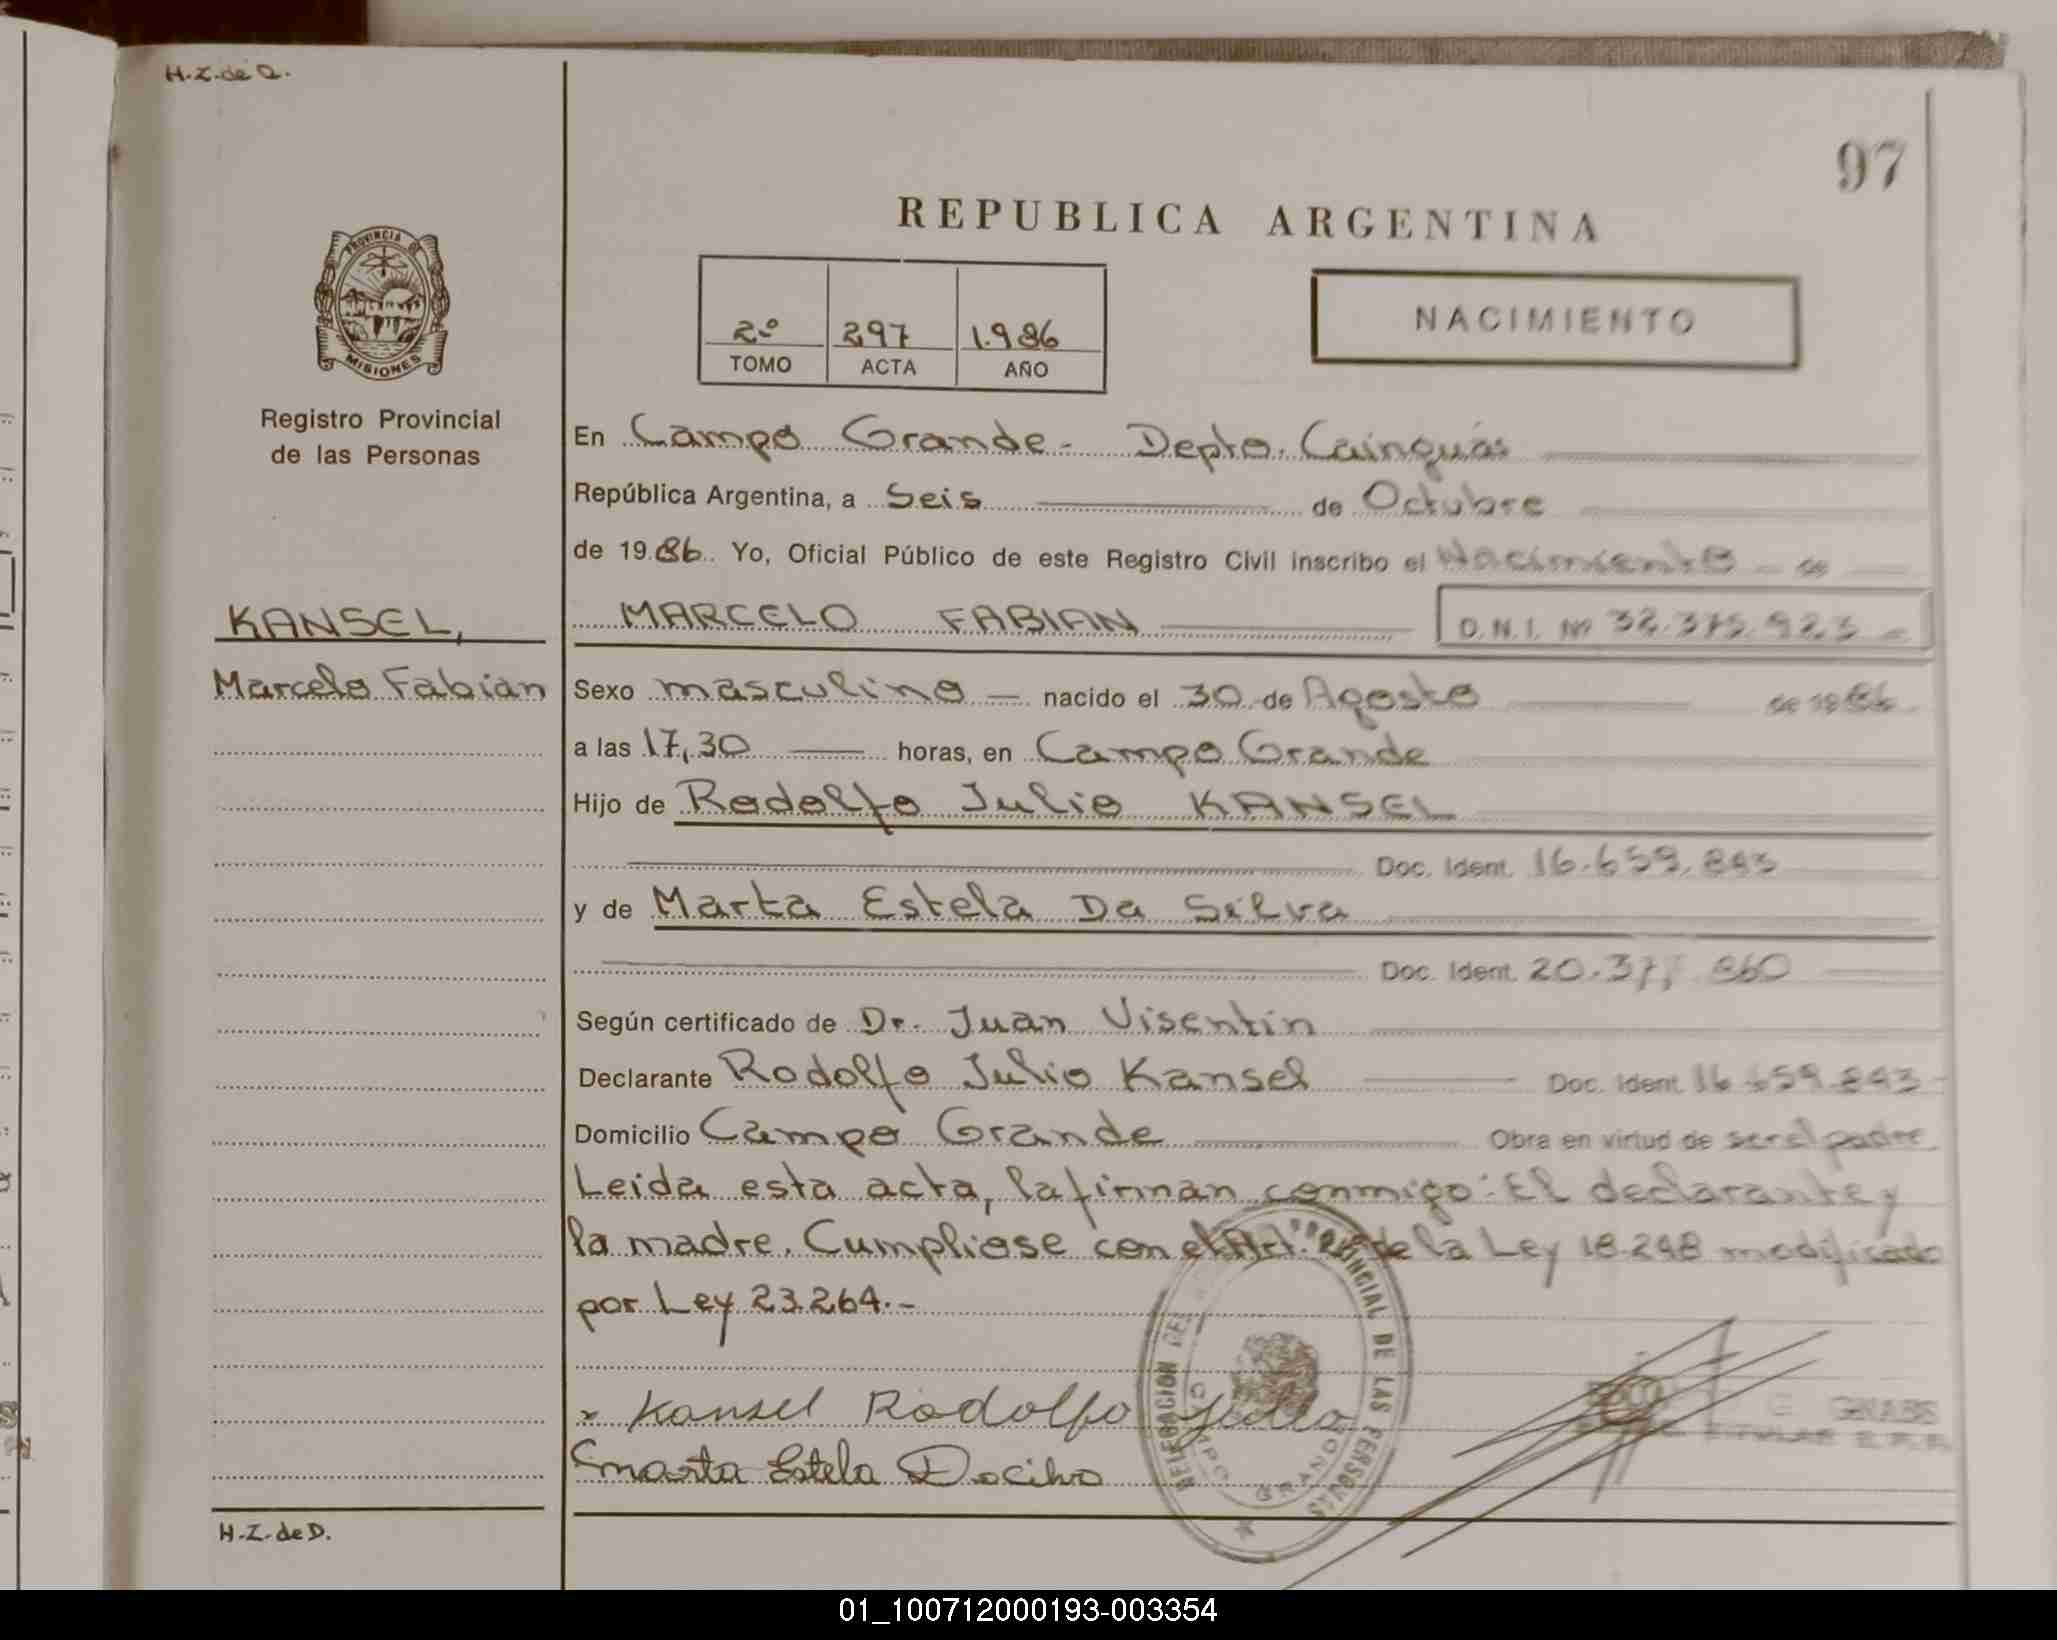 H.Z.de D.
97
REPUBLICA ARGENTINA
PROVINCIA DE
MISIONES
2º 297 1.986
TOMO ACTA AÑO
NACIMIENTO
Registro Provincial
de las Personas
En Campo Grande - Depto. Cainguás
República Argentina, a Seis de Octubre
de 1986. Yo, Oficial Público de este Registro Civil inscribo el Nacimiento de
KANSEL,
MARCELO FABIAN D.N.I. Nº 32.375.923
Marcelo Fabian
Sexo masculino nacido el 30 de Agosto de 1986
a las 17,30 horas, en Campo Grande
Hijo de Rodolfo Julio KANSEL
Doc. Ident. 16.659.893
y de Marta Estela Da Silva
Doc. Ident. 20.377 860
Según certificado de Dr. Juan Visentin
Declarante Rodolfo Julio Kansel Doc. Ident. 16.659.893
Domicilio Campo Grande Obra en virtud de ser el padre
Leida esta acta, la firman conmigo: El declarante y
la madre. Cumpliose con el Art. de la Ley 18.248 modificado
por Ley 23.264.-
Kansel Rodolfo Julio
Marta Estela Dacilva
DELEGACION DEL PROVINCIAL DE LAS PERSONAS
CAMPO GRANDE
TITULAR R.P.P.
H.Z.de D.
01_100712000193-003354